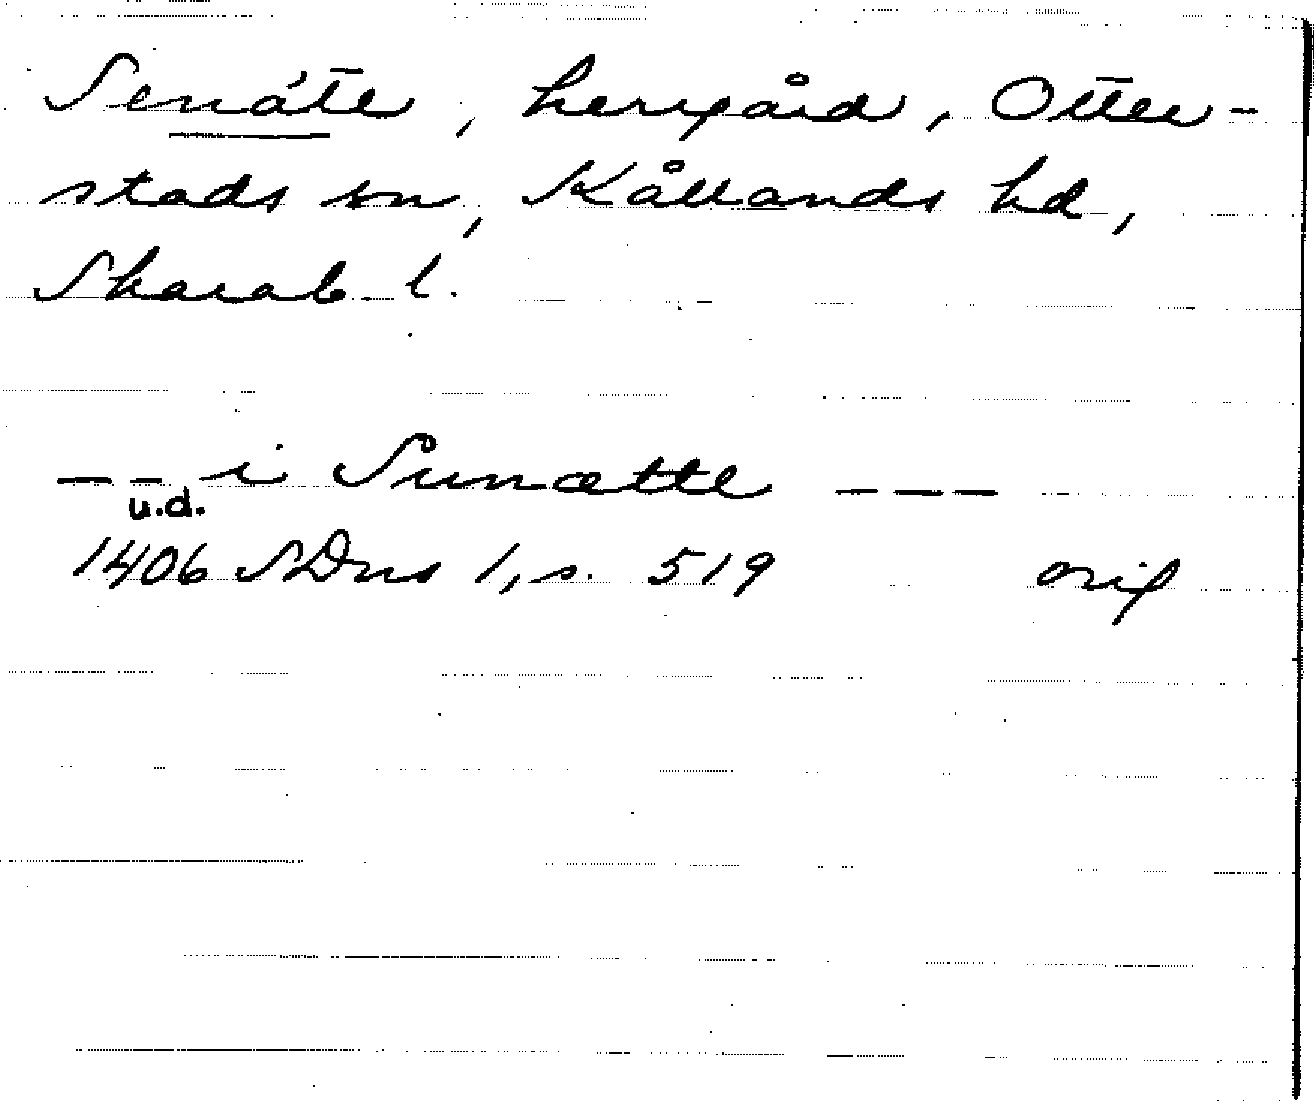 Senáte, herrgård, Otter-
stads sn, Kållands hd,
Skarab. l.
— – i Sunætte — — —
u.d.
1406 SDns 1, s. 519 orig